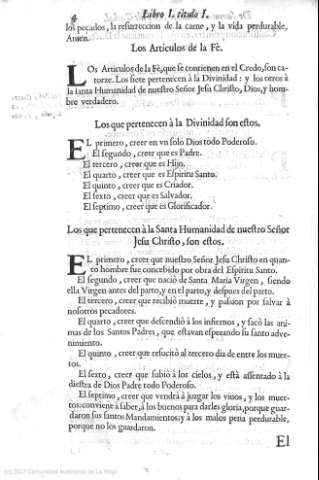 Libro I. titulo I.
los pecados, la resurreccion de la carne, y la vida perdurable,
Amen.
Los Articulos de la Fè.
LOs Articulos de la Fè, que se contienen en el Credo, son ca-
torze. Los siete pertenecen à la Divinidad: y los otros à
la santa Humanidad de nuestro Señor Jesu Christo, Dios, y hom-
bre verdadero.
Los que pertenecen à la Divinidad son estos.
EL primero, creer en vn solo Dios todo Poderoso.
El segundo, creer que es Padre.
El tercero, creer que es Hijo.
El quarto, creer que es Espiritu Santo.
El quinto, creer que es Criador.
El sexto, creer que es Salvador.
El septimo, creer que es Glorificador.
Los que pertenecen à la Santa Humanidad de nuestro Señor
Jesu Christo, son estos.
EL primero, creer que nuestro Señor Jesu Christo en quan-
to hombre fue concebido por obra del Espiritu Santo.
El segundo, creer que naciò de Santa Maria Virgen, siendo
ella Virgen antes del parto, y en el parto, y despues del parto.
El tercero, creer que recibiò muerte, y passion por salvar à
nosotros pecadores.
El quarto, creer que descendiò à los infiernos, y sacò las ani-
mas de los Santos Padres, que estavan esperando su santo adve-
nimiento.
El quinto, creer que resucitò al tercero dia de entre los muer-
tos.
El sexto, creer que subiò à los cielos, y està assentado à la
diestra de Dios Padre todo Poderoso.
El septimo, creer que vendrà à juzgar los vivos, y los muer-
tos: conviene à saber, à los buenos para darles gloria, porque guar-
daron sus santos Mandamientos: y à los malos pena perdurable,
porque no los guardaron.
El
(c) 2007 Comunidad Autónoma de La Rioja